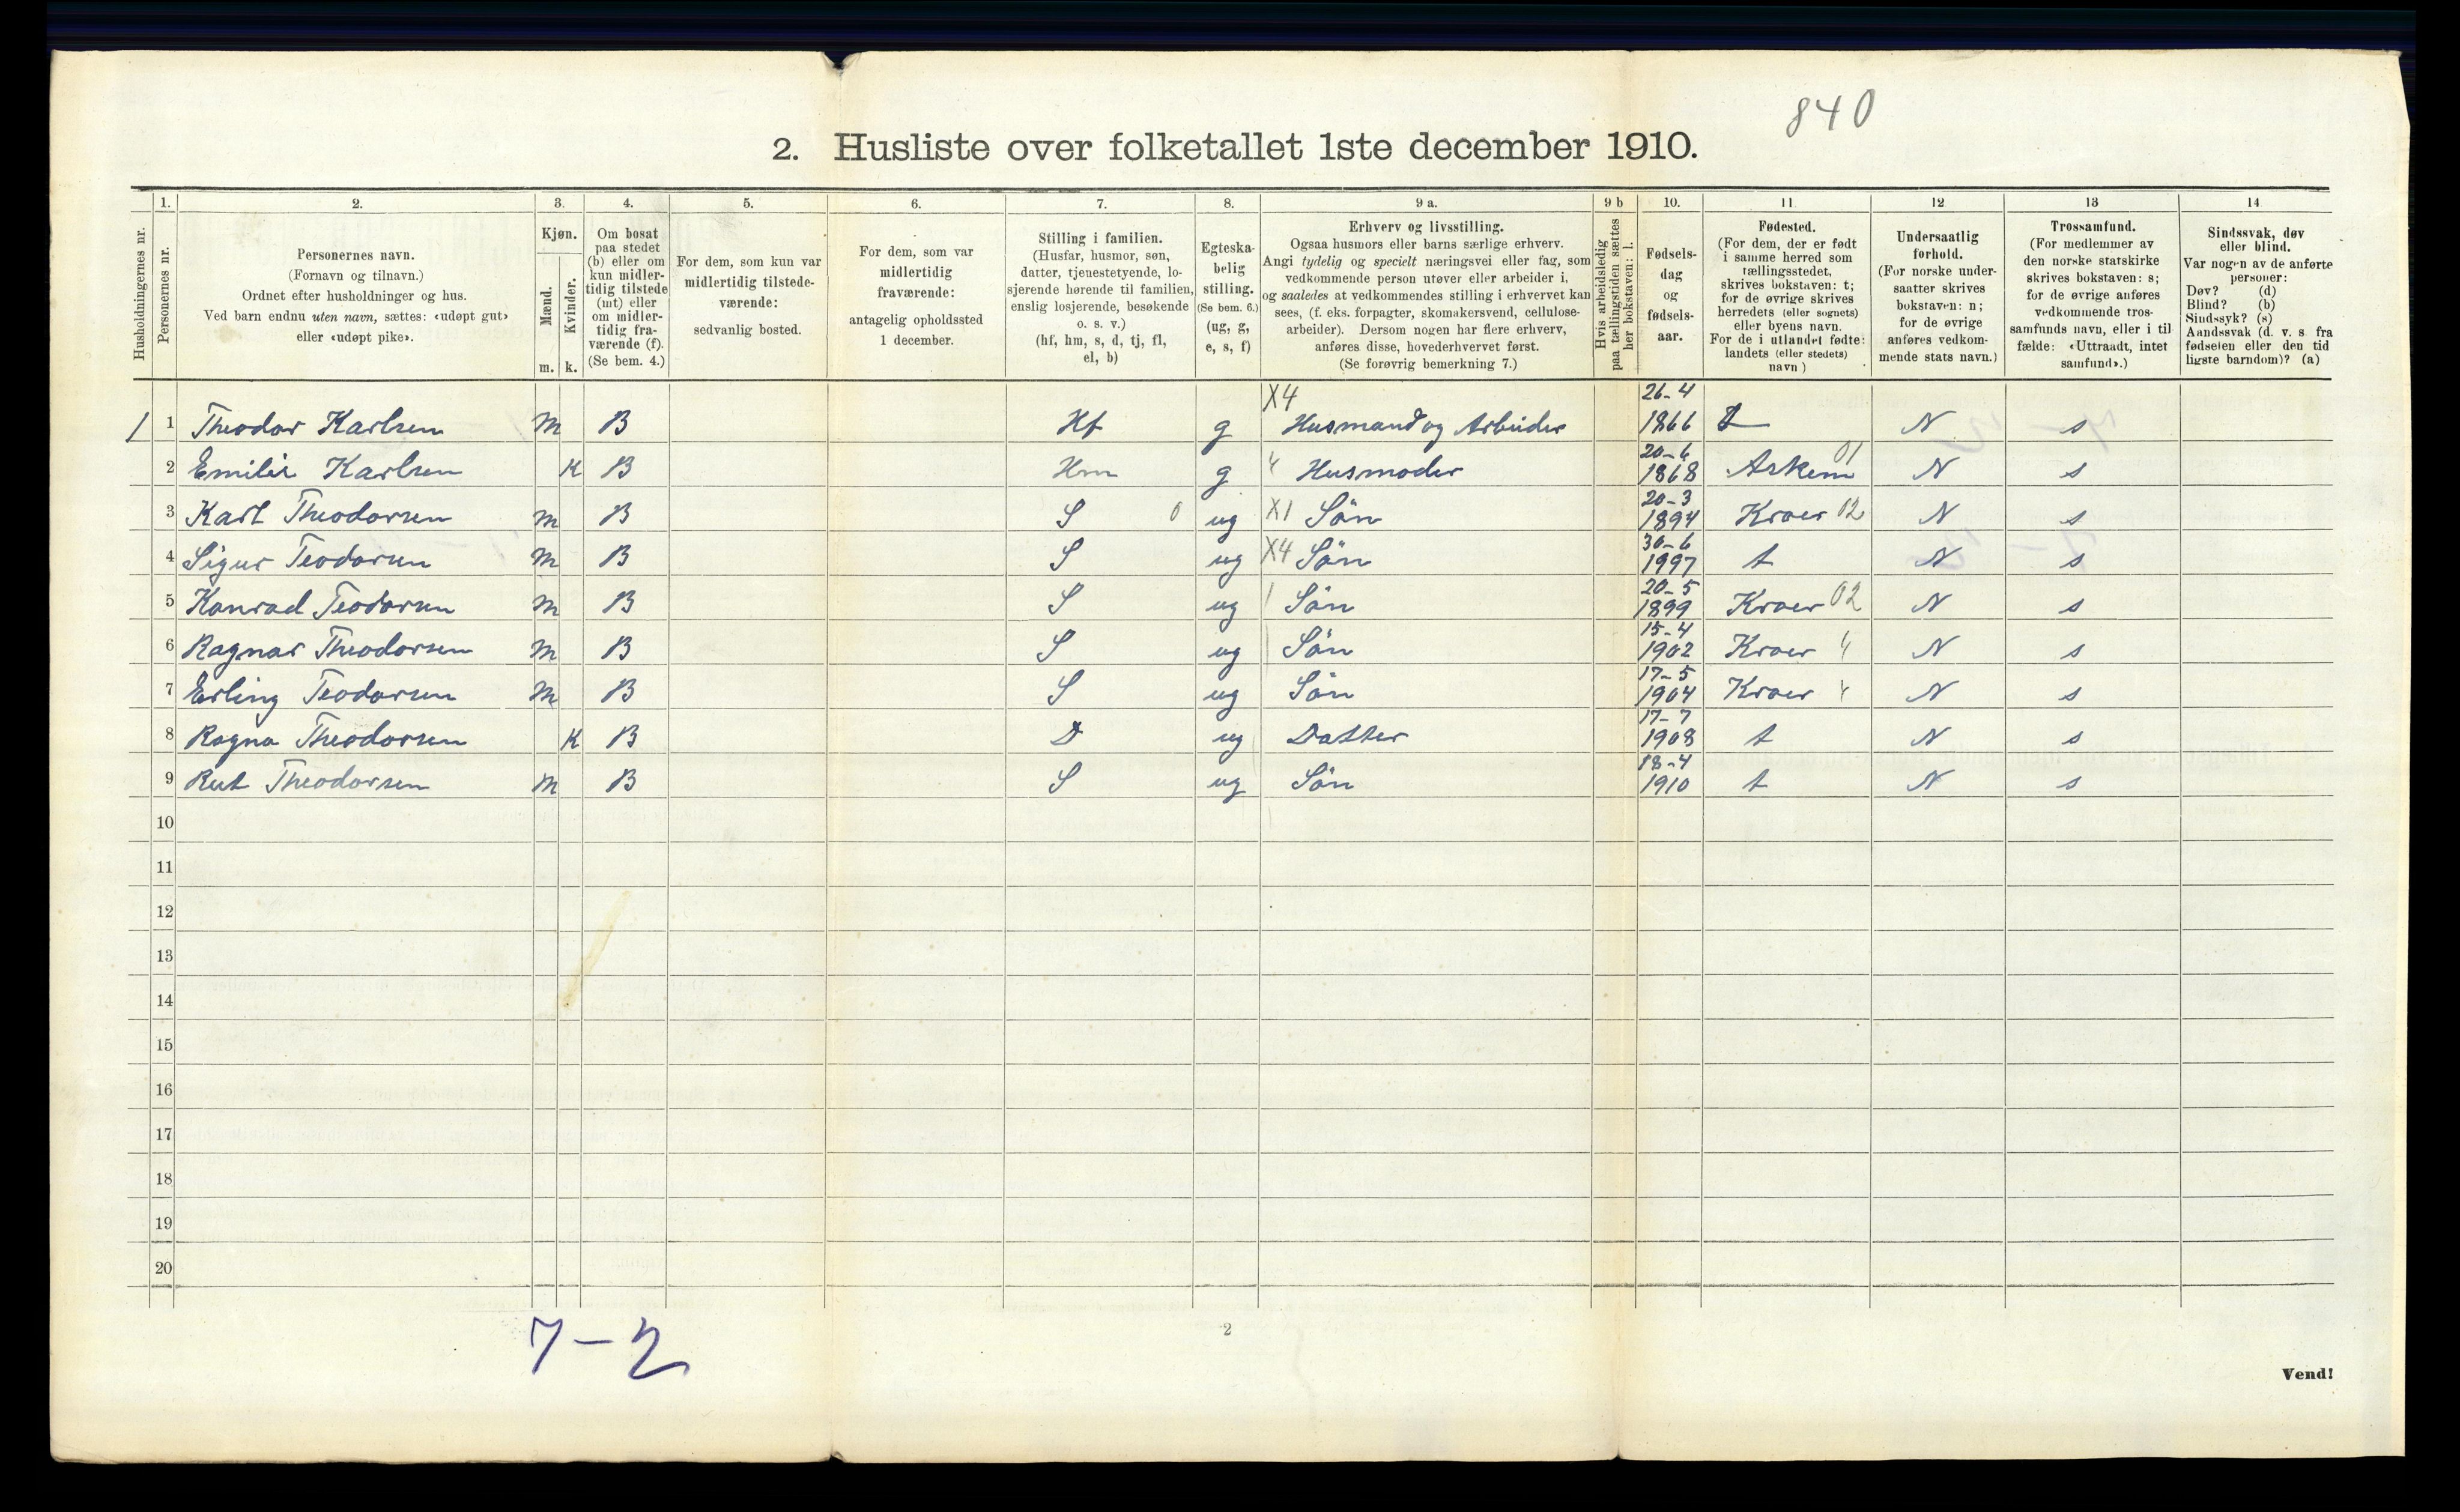 840
2. Husliste over folketallet 1ste december 1910.
Husholdningernes nr.
1.
Personernes nr.
2.
Personernes navn.
(Fornavn og tilnavn.)
Ordnet efter husholdninger og hus.
Ved barn endnu uten navn, sættes: «udøpt gut»
eller «udøpt pike».
3.
Kjøn.
Mænd.
Kvinder.
m. k.
4.
Om bosat
paa stedet
(b) eller om
kun midler-
tidig tilstede
(mt) eller
om midler-
tidig fra-
værende (f).
(Se bem. 4.)
5.
For dem, som kun var
midlertidig tilstede-
værende:
sedvanlig bosted.
6.
For dem, som var
midlertidig
fraværende:
antagelig opholdssted
1 december.
7.
Stilling i familien.
(Husfar, husmor, søn,
datter, tjenestetyende, lo-
sjerende hørende til familien,
enslig losjerende, besøkende
o. s. v.)
(hf, hm, s, d, tj, fl,
el, b)
8.
Egteska-
belig
stilling.
(Se bem. 6.)
(ug, g,
e, s, f)
9 a.
Erhverv og livsstilling.
Ogsaa husmors eller barns særlige erhverv.
Angi tydelig og specielt næringsvei eller fag, som
vedkommende person utøver eller arbeider i,
og saaledes at vedkommendes stilling i erhvervet kan
sees, (f. eks. forpagter, skomakersvend, cellulose-
arbeider). Dersom nogen har flere erhverv,
anføres disse, hovederhvervet først.
(Se forøvrig bemerkning 7.)
9 b
Hvis arbeidsledig
paa tællingstiden sættes
her bokstaven: l.
10.
Fødsels-
dag
og
fødsels-
aar.
11
Fødested.
(For dem, der er født
i samme herred som
tællingsstedet,
skrives bokstaven: t;
for de øvrige skrives
herredets (eller sognets)
eller byens navn.
For de i utlandet fødte:
landets (eller stedets)
navn)
12
Undersaatlig
forhold.
(For norske under-
saatter skrives
bokstaven: n;
for de øvrige
anføres vedkom-
mende stats navn.)
13
Trossamfund.
(For medlemmer av
den norske statskirke
skrives bokstaven: s;
for de øvrige anføres
vedkommende tros-
samfunds navn, eller i til
fælde: «Uttraadt, intet
samfund».)
14
Sindssvak, døv
eller blind.
Var nogen av de anførte
personer:
Døv? (d)
Blind? (b)
Sindssyk? (s)
Aandssvak (d. v. s. fra
fødselen eller den tid
ligste barndom)? (a)
1 1 Theodor Karlsen m B Hf g X4 Husmand og Arbeider 26-4 1866 t N s
2 Emilie Karlsen K B Hm g 4 Husmoder 20-6 1868 Askem 01 N s
3 Karl Theodorsen m B S 0 ug X1 Sön 20-3 1894 Kroer 02 N s
4 Sigur Teodorsen m B S ug X4 Sön 30-6 1997 t N s
5 Konrad Teodorsen m B S ug 1 Sön 20-5 1899 Kroer 02 N s
6 Ragnar Theodorsen m B S ug Sön 15-4 1902 Kroer 4 N s
7 Erling Teodorsen m B S ug Sön 17-5 1904 Kroer 4 N s
8 Ragna Theodorsen K B D ug Datter 17-7 1908 t N s
9 Rut Theodorsen m B S ug Sön 18-4 1910 t N s
10
11
12
13
14
15
16
17
18
19
20
7-2
2
Vend!